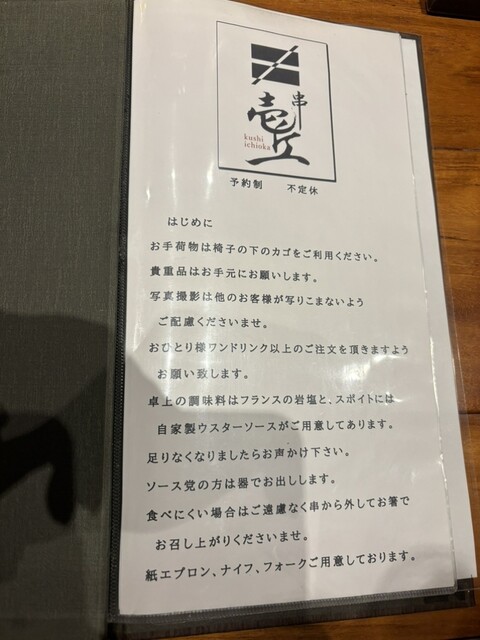 串
壱丘
kushi
ichioka
予約制　不定休
はじめに
お手荷物は椅子の下のカゴをご利用ください。
貴重品はお手元にお願いします。
写真撮影は他のお客様が写りこまないよう
ご配慮くださいませ。
おひとり様ワンドリンク以上のご注文を頂きますよう
お願い致します。
卓上の調味料はフランスの岩塩と、スポイトには
自家製ウスターソースがご用意してあります。
足りなくなりましたらお声かけ下さい。
ソース党の方は器でお出しします。
食べにくい場合はご遠慮なく串から外してお箸で
お召し上がりくださいませ。
紙エプロン、ナイフ、フォークご用意しております。